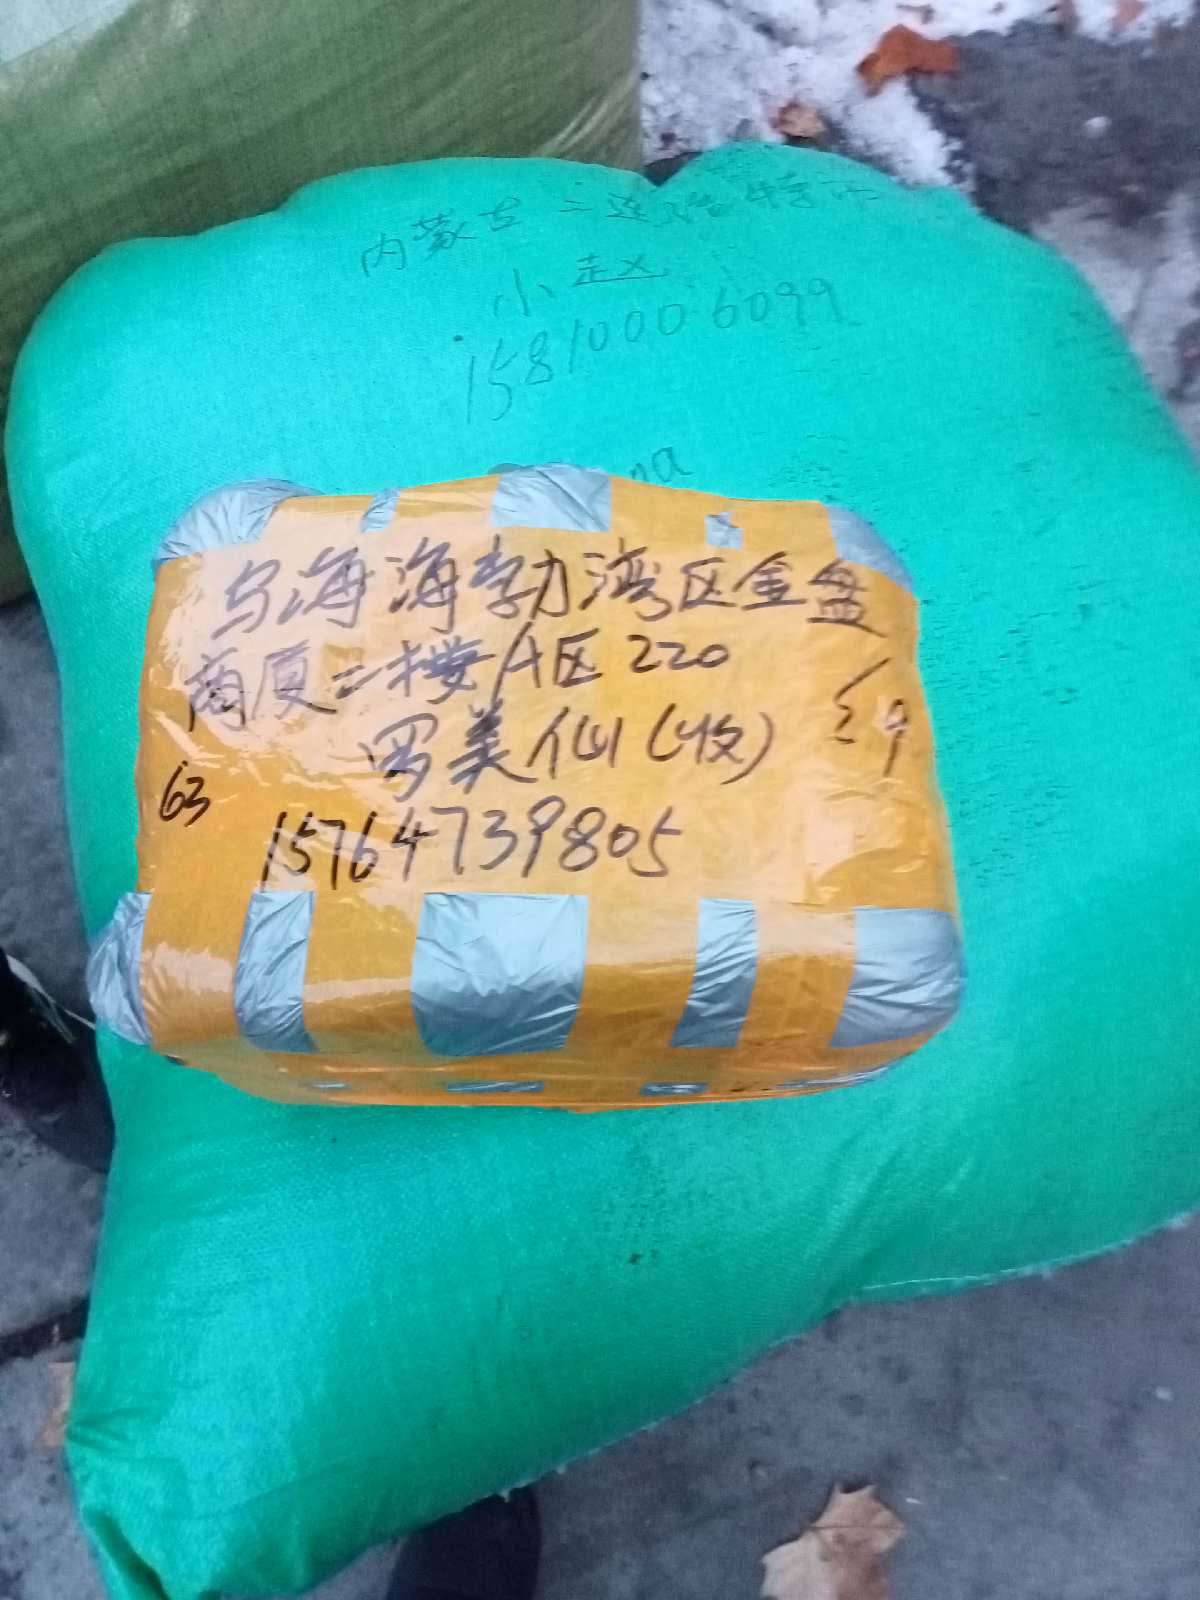 内蒙古二连浩特市
小赵
15810006099
na
乌海海勃湾区金盘
商厦二楼A区220
罗美仙(收)
63
15764739805